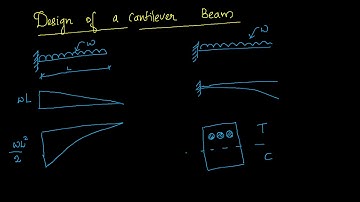 Design of a Cantilever Beam
w
L
wL
wL²
2
w
T
C